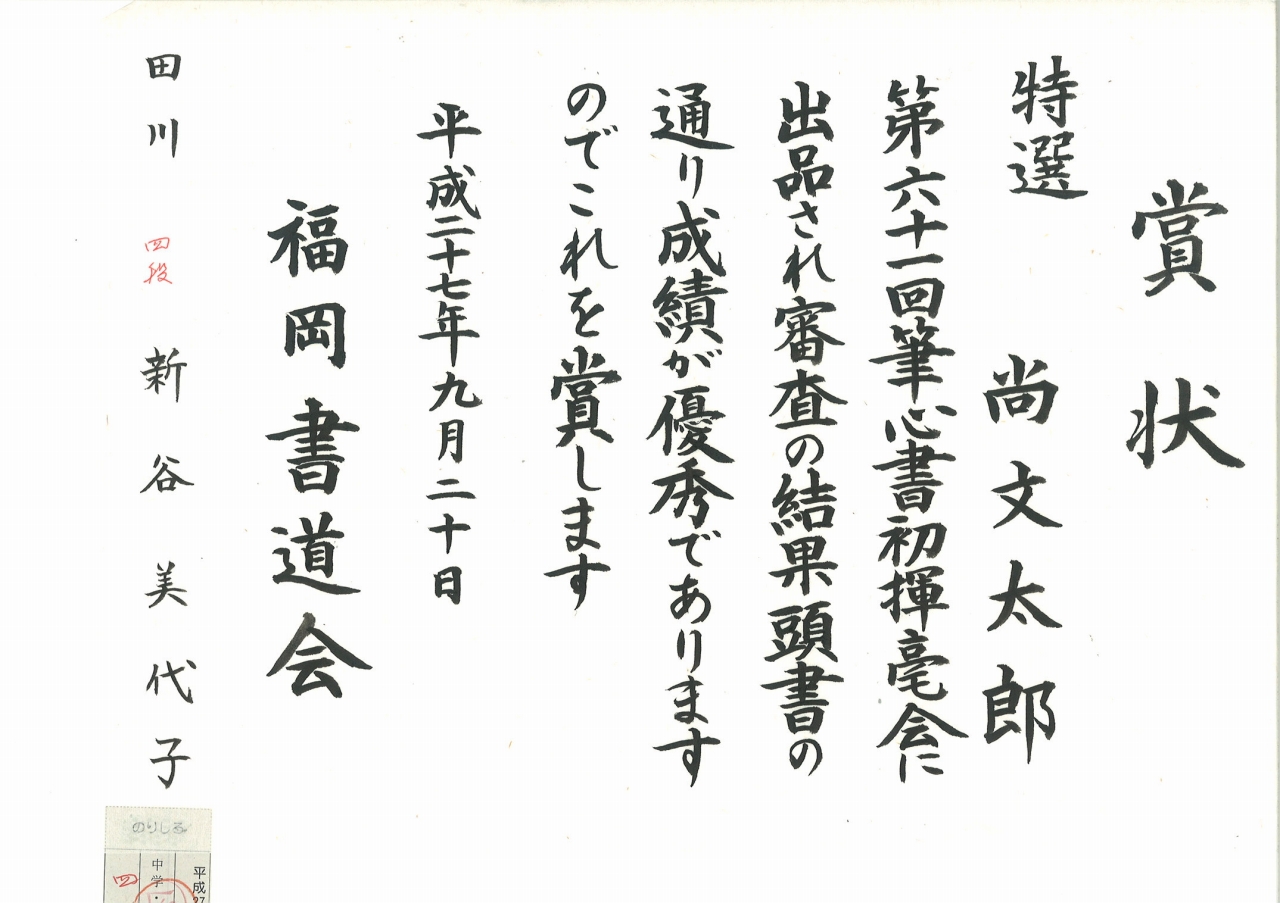 賞状
特選 尚文太郎
第六十一回筆心書初揮毫会に
出品され審査の結果頭書の
通り成績が優秀であります
のでこれを賞します
平成二十七年九月二十日
福岡書道会
田川 四段 新谷美代子
のりしろ
平成27
中学・
四